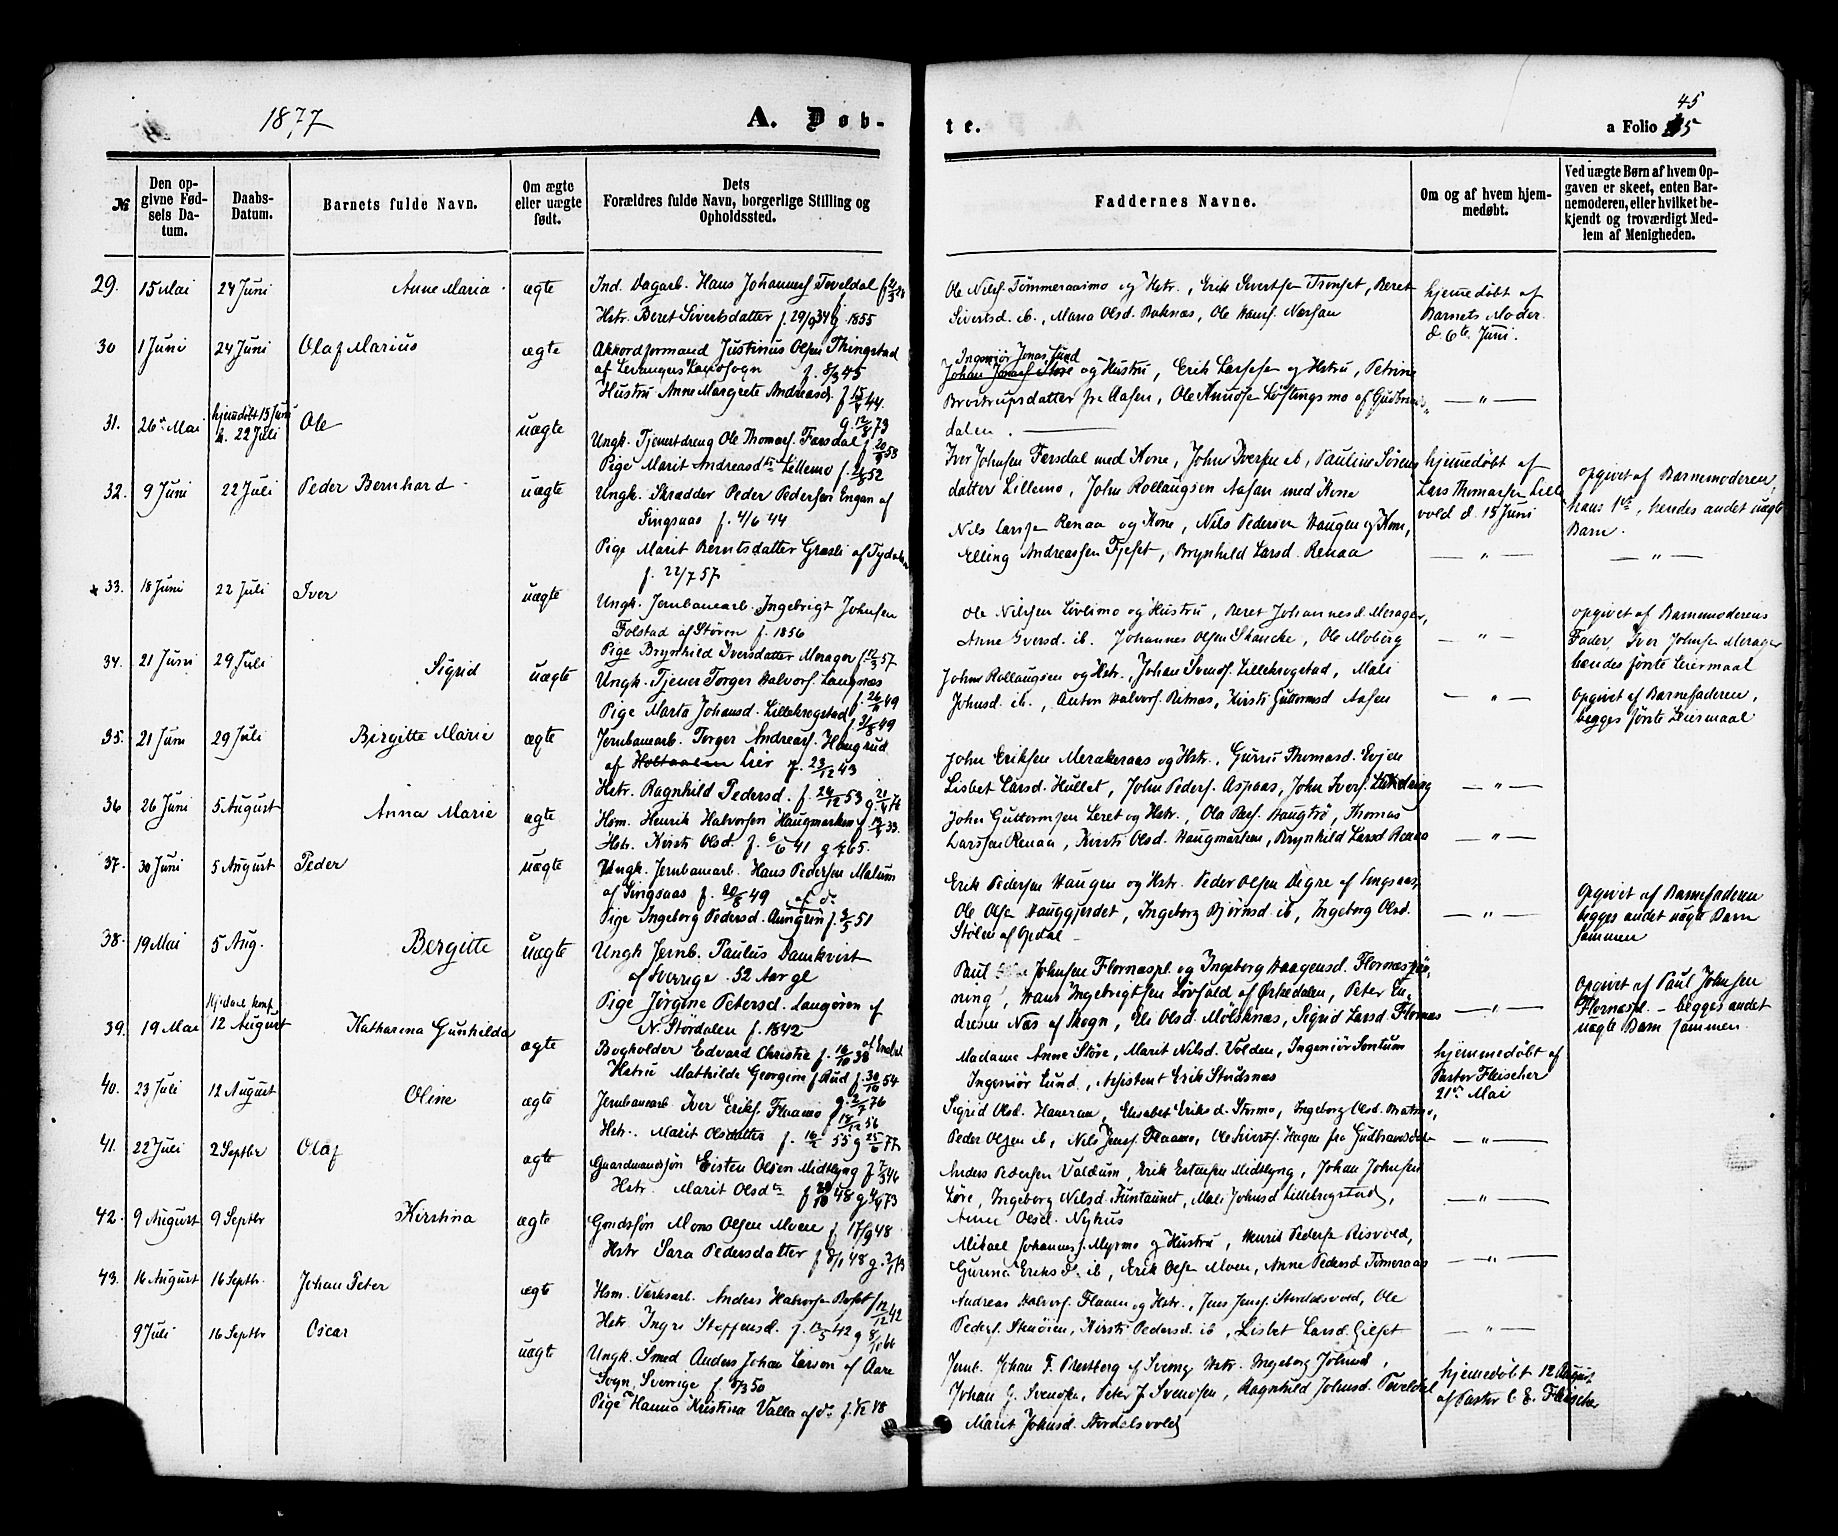 1877
A. Døb-
te.
45
a Folio
No
Den opgivne Fødsels Datum.
Daabs-Datum.
Barnets fulde Navn.
Om ægte eller uægte født.
Dets Forældres fulde Navn, borgerlige Stilling og Opholdssted.
Faddernes Navne.
Om og af hvem hjemmedøbt.
Ved uægte Børn af hvem Opgaven er skeet, enten Barnemoderen, eller hvilket bekjendt og troværdigt Medlem af Menigheden.
29. 15 Mai 24 Juni Anne Maria ægte
Ind. Dagarb. Hans Johannesf Teveldal
Hstr. Beret Sivertsdatter f. 29/9 34 g. 1855
Ole Nilsf Tømmeraasmo og Hstr., Erik Sivertsen Tronset, Beret
Sivertsd. ib., Maria Olsd. Baknæs, Ole Hansf. Næsan
hjemmedøbt af
Barnets Moder
d. 6te Juni.
30 1 Juni 24 Juni Olaf Marius ægte
Akkordformand Justinus Olsen Thingstad
af Levangers Landsogn f. 8/3 45
Hustru Anne Margrete Andreasd. f 15/4 44.
g. 12/8 73
Ingeniør Jonas Lund
og Hustru, Erik Larssen og Hstru, Petrine
Brodtrupsdatter fra Aasen, Ole Amundse Løftingsmo af Gudbrands
dalen.
— " —
31. 26de Mai hjemdøbt 15 Juni
k. 22 Juli Ole uægte
Ungk. Tjenestdreng Ole Thomasf. Færsdal f 20/9 53
Pige Marit Andreasdtr Lillemo f. 52
Iver Johnsen Færsdal med Kone, John Iversen ib, Pauline Sørens
datter Lillemo, John Rollaugsen Aasan med Kone
hjemmedøbt af
Lars Thomassen Lille
vold d. 15 Juni
opgivet af Barnemoderen,
hans 1ste, hendes andet uægte
Barn.
32. 9 Juni 22 Juli Peder Bernhard uægte
Ungk. Skrædder Peder Pedersen Engan af
Singsaas f. 4/6 44
Pige Marit Berntsdatter Græsli af Tydalen
f. 22/7 57
Nils Larsen Renaa og Kone, Nils Pedersen Haugen og Kone,
Elling Andreassen Fjeset, Brynhild Larsd. Renaa
— " —
— " —
33. 18 Juni 22 Juli Iver uægte
Ungk. Jernbanearb. Ingebrigt Johnsen
Folstad af Støren f. 1856
Pige Brynhild Iversdatter Merager f 12/3 57
Ole Nilsen Løvlimo og Hustru, Beret Johannesd. Merager,
Anne Iversd. ib. Johannes Olsen Skancke, Ole Moberg
— " —
opgivet af Barnmoderens
Fader, Iver Johnsen Merager
hendes første Leiermaal
34. 21 Juni 29 Juli Sigrid uægte
Ungk. Tjener Torger Halvorsf. Langnæs
f. 26/11 49
Pige Marta Johansd. Lillekregstad f 3/8 49
John Rollaugsen og Hstr., Johan Svendsf. Lillekregstad, Mali
Johnsd. ib., Anton Halvorsf. Ritnæs, Kirsti Guttormsd Aasen
— " —
Opgivet af Barnefaderen,
begges første Leiermaal
35. 21 Juni 29 Juli Birgitte Marie ægte
Jernbanearb. Torger Andreasf. Haugrud
af Holtaalen Lier f. 23/12 43
Hstr. Ragnhild Pedersd. f. 24/12 53 g. 21/4 76
John Eriksen Merakeraas og Hstr., Gurru Thomasd. Evjen
Lisbet Larsd. Hullet, John Pedersf. Aspaas, John Iversf.
— " —
36 26 Juni 5 August Anna Marie ægte
Hsm. Henrik Halvorsen Haugmarken f 33.
Hstr. Kirsti Olsd. f. 6/6 41 g. 65.
John Guttormsen Leret og Hstr., Ola Haugtrø, Thomas
Larssen Renaa, Kirsti Olsd. Haugmarken, Brynhild Larsd Renaa
— " —
37. 30 Juni 5 August Peder uægte
Ungk. Jernbanearb. Hans Pedersen Malum
af Singsaas f. 20/6 49 af do.
Pige Ingeborg Pedersd. Aungen f. 3/5 51
Erik Pedersen Haugen og Hstr. Peder Olsen Digre af Singsaas
Ole Olsen Hauggjerdet, Ingeborg Bjørnsd. ib, Ingeborg Olsd.
Stølen af Opdal
— " —
Opgivet af Barnefaderen
begges andet uægte Barn
sammen
38. 19 Mai 5 Aug. Bergitte uægte
Ungk Jernb. Paulus Damkvist
af Sverrige 52 Aar gl
Pige Jørgine Petersd. Langøren af
N. Stördalen f. 1842
Paul Johnsen Flornæspl. og Ingeborg Haagensd. Flornæs
ning, Hans Ingebrigtsen Løvfald af Ørkedalen, Peter En
dresen Næs af Skogn, Eli Olsd. Mølsknæs, Sigrid Larsd. Flornæs
— " —
Opgivet af Paul Johnsen
Flornæspl. – begges andet
uægte Barn sammen.
39. 19 Mai 12 August Katharina Gunhilda ægte
Bogholder Edvard Christie f. 16/10 38
Hstru Mathilde Georgine f. Rud f. 30/10 54
g. 2/7 76
Madame Anne Støre, Marit Nilsd. Volden, Ingeniør Sontum
Ingeniør Lund, Assistent Erik Stridsnæs
hjemmedøbt af
Pastor Fleischer
21de Mai
40. 23 Juli 12 August Oline ægte
Jernbanearb. Iver Eriksf. Flaamo f 17/12 56
Hstr. Marit Olsdatter f. 16/2 55 g 25/6 77
Sigrid Olsd. Haneran, Elisabet Eriksd. Stormo, Ingeborg Olsd.
Peder Olsen ib, Nils Jensf. Flaamo, Ole Sivertsf. Hagen fra Gudbrandsdal
— " —
41. 22 Juli 2 Septbr Olaf ægte
Gaardmandssøn Eisten Olsen Midtbyng f. 7/3 46
Hstr. Marit Olsdtr f 48 g 73
Anders Pedersen Valdum, Erik Estensen Midtbyng, Johan Johnsen
Løre, Ingeborg Nilsd. Funtaunet, Mali Johnsd Lillekregstad,
Anne Olsd. Nyhus
— " —
42. 9 August 9 Septbr Kirstina ægte
Gmdssøn Mons Olsen Moen f 17/9 48.
Hstr Sara Pedersdatter f 8/1 48 g. 73
Mikael Johannesf. Myrmo og Hustru, Marit Pederse Risvold,
Gurina Eriksd. ib, Erik Olsen Moen, Anne Pedersd Tømeraas
— " —
43. 16 August 16 Septbr. Johan Peter ægte
Hsm. Værksarb. Anders Halvorsen f 12/12 42
Hstr Ingri Steffensd. f. 13/5 42 g 8/11 66
Andreas Halvorsf. Flaaen og Hstr., Jens Jensf. Stordalsvold, Ole
Pedersf. Stenøien, Kirsti Pedersd. ib, Lisbet Larsd. Gilset
— " —
9 Juli 16 Septbr Oscar uægte
Ungk. Smed Anders Johan Larson af Aare
Sogn, Sverrige f. 50
Pige Hanna Kristina Valla af do f. 48
Jernb. Johan F. Presberg af Sverig Hstr. Ingeborg Johnsd.,
Johan G. Svenske, Peter J. Svendsen, Ragnhild Johnsd. Teveldal
Marit Johnsd. Stordalsvold
hjemmedøbt 12 August
af Pastor C. E. Fleischer